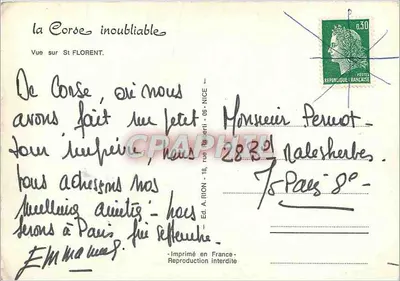 la Corse inoubliable
Vue sur St FLORENT.
0,30
POSTES
REPUBLIQUE FRANÇAISE
De Corse, où nous
avons fait un petit
tour imprévu, nous
vous adressons nos
meilleures amitiés - nous
serons à Paris fin septembre.
Emmanuel
Ed. A. RION - 18, rue - 06 - NICE
Monsieur Pernot -
28 Bd Malesherbes
75 Paris 8e -
-Imprimé en France-
Reproduction interdite